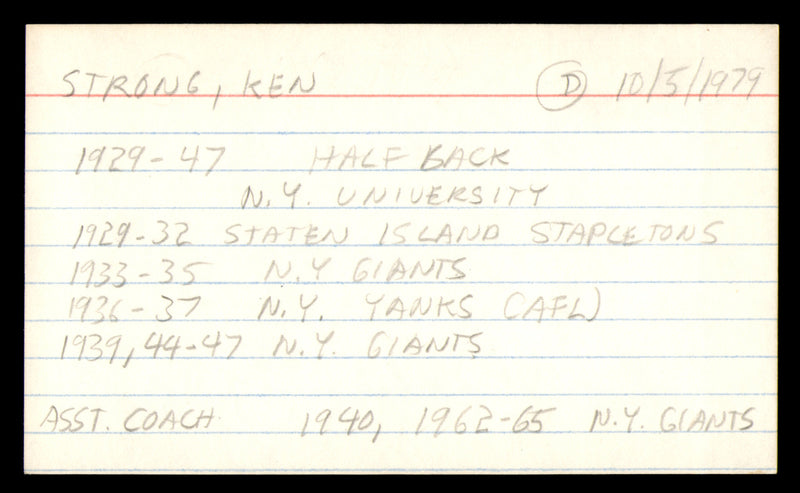 STRONG, KEN D 10/5/1979
1929-47 HALF BACK
N.Y. UNIVERSITY
1929-32 STATEN ISLAND STAPLETONS
1933-35 N.Y GIANTS
1936-37 N.Y. YANKS (AFL)
1939, 44-47 N.Y. GIANTS
ASST. COACH 1940, 1962-65 N.Y. GIANTS